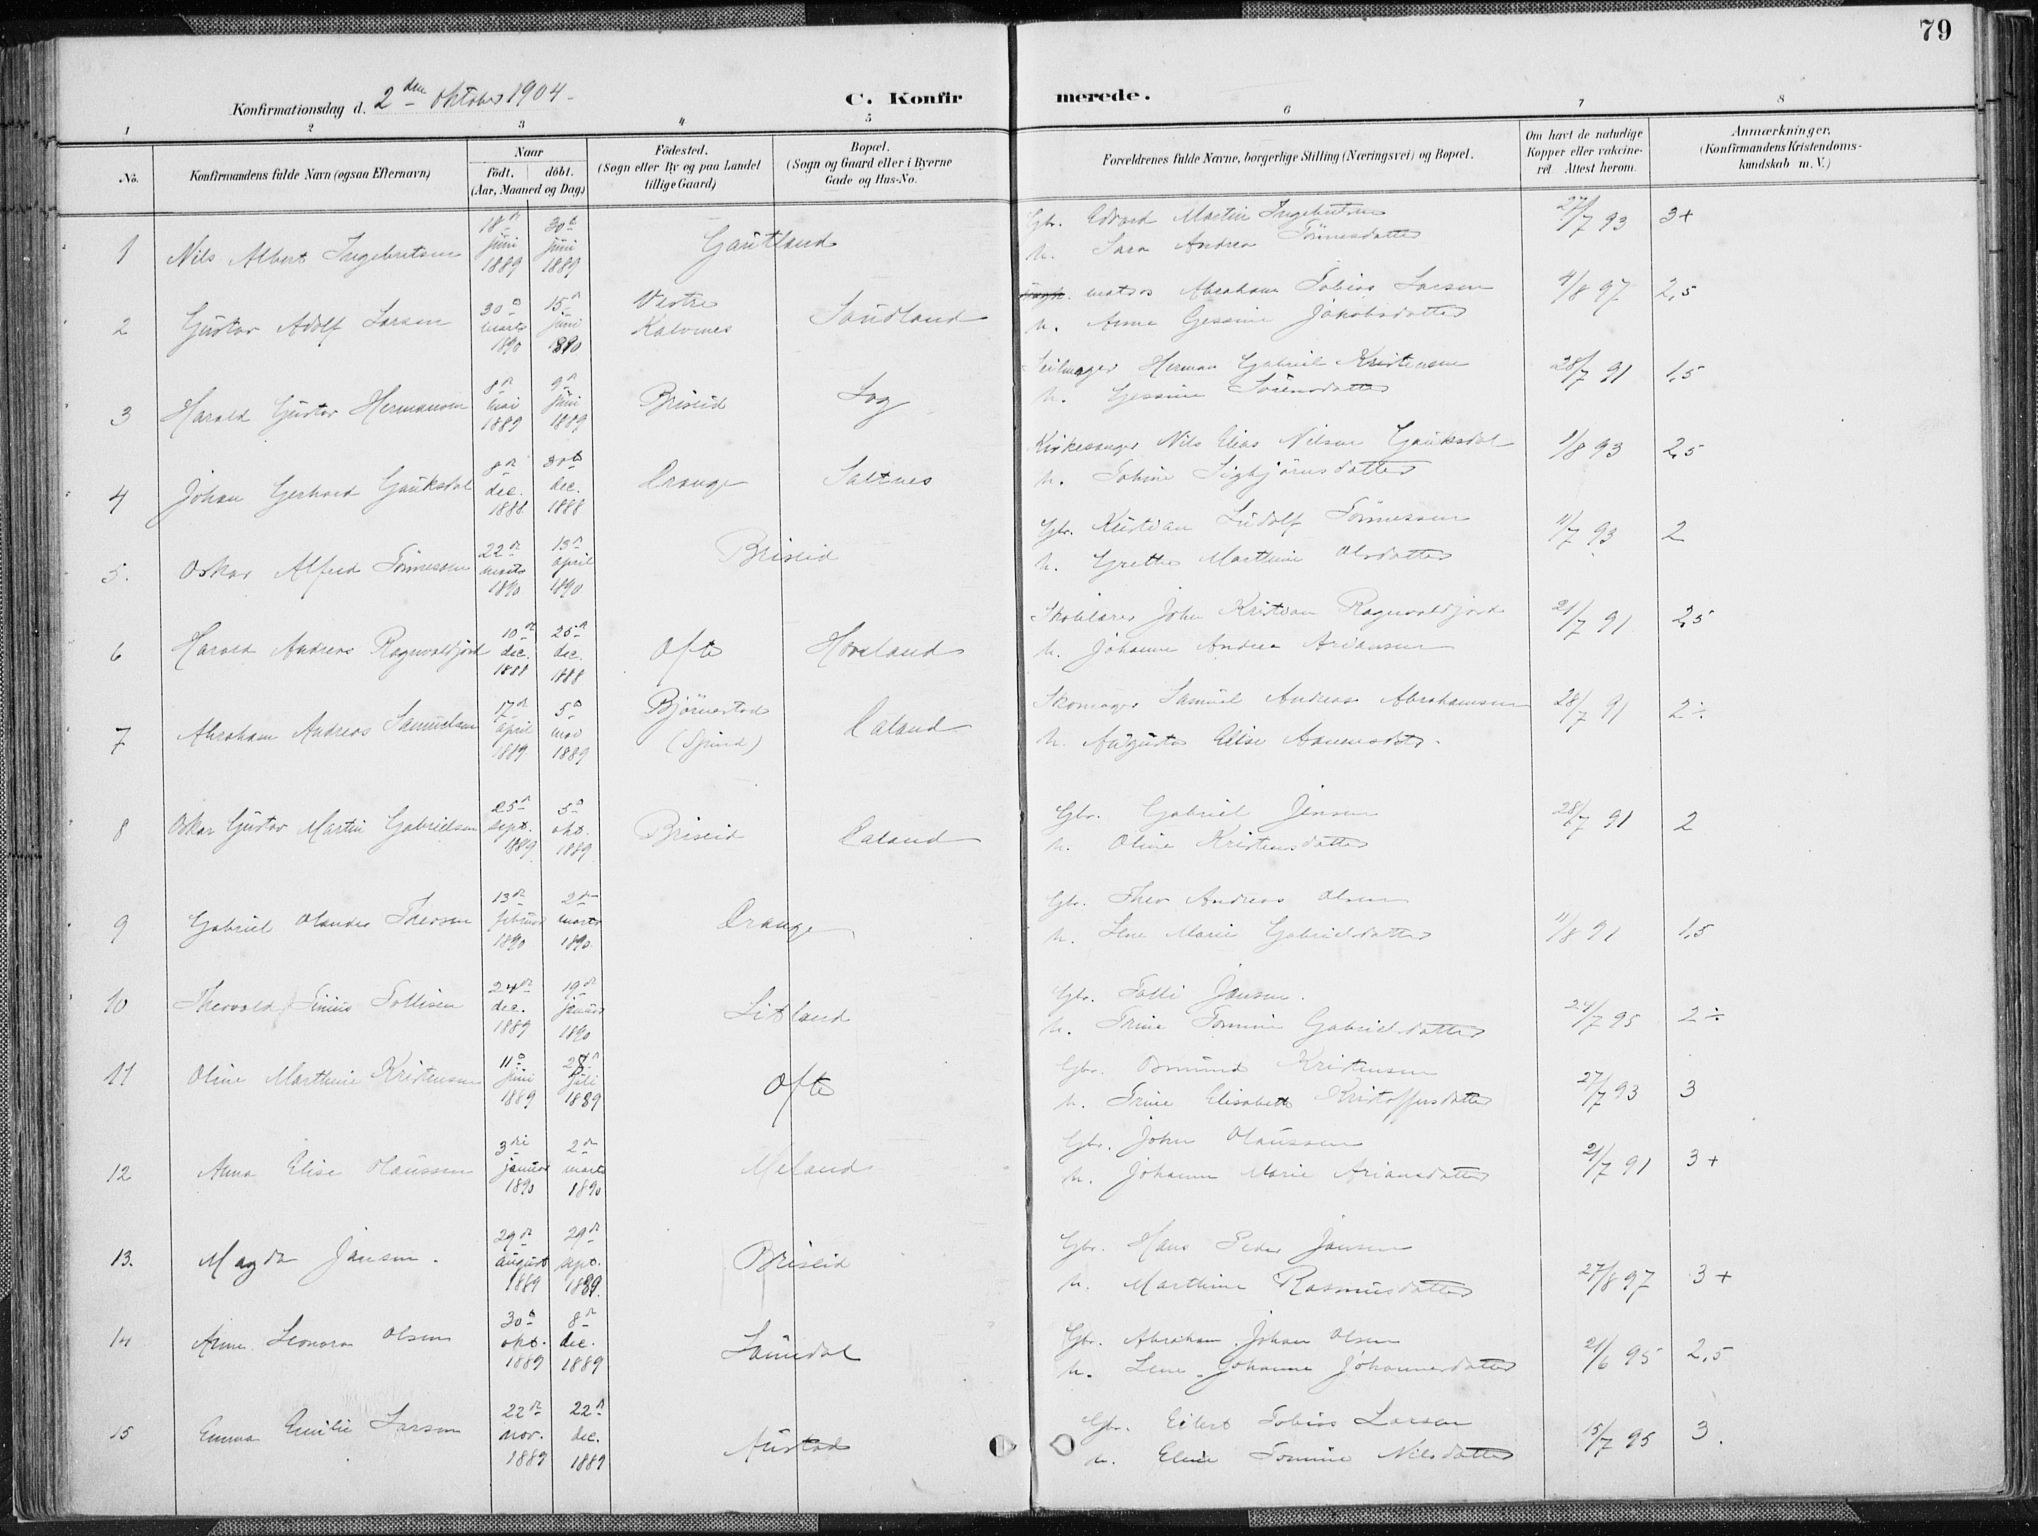 79
Konfirmationsdag d. 2den oktober 1904.
C. Konfirmerede.
1 2 3 4 5 6 7 8
No.
Konfirmandens fulde Navn (ogsaa Efternavn)
Naar
födt. döbt.
(Aar, Maaned og Dag)
Födested.
(Sogn eller By og paa Landet
tillige Gaard)
Bopæl.
(Sogn og Gaard eller i Byerne
Gade og Hus-No.
Forældrenes fulde Navne, borgerlige Stilling (Næringsvei) og Bopæl.
Om havt de naturlige
Kopper eller vakcine-
ret. Attest herom.
Anmærkninger.
(Konfirmandens Kristendoms-
kundskab m. V.)
1 Nils Albert Ingebretsen 18de juni 1889 30te juni 1889 Gautland Gbr. Edvard Martin Ingebretsen
h. Sara Andrea Tönnesdatter 27/7 93 3+
2 Gustav Adolf Larsen 30te marts 1890 15de juni 1890 Vestre Kalvenes Sandland matros Abraham Tobias Larsen
h. Anne Gessine Jakobsdatter 4/8 97 2,5
3 Harald Gustav Hermansen 8de mai 1889 9de juni 1889 Briseid Log Seilmager Herman Gabriel Kristensen
h. Gessine Sörensdatter 28/7 91 1,5
4 Johan Gerhard Gauksdal 8de dec. 1888 30te dec. 1888 Drange Saltnes Kirkesanger Nils Elias Nilsen Gauksdal
h. Tobine Sigbjörnsdatter 1/8 93 2,5
5. Oskar Alfred Tönnessen 22de marts 1890 13de april 1890 Briseid Gbr. Kristian Ludolf Tönnessen
h. Grethe Marthine Olsdatter 11/7 93 2
6 Harald Andreas Ragnvaldjord 10de dec. 1888 25de dec. 1888 Ofte Hovland Skolelærer John Kristian Ragnvaldjord
h. Johanne Andrea Ariansen 21/7 91 2,5
7 Abraham Andreas Samuelsen 17de april 1889 5te mai 1889 Björnestad
(Spind) Raland Skomager Samuel Andreas Abrahamsen
h. Augusta Elise Aanensdtr. 28/7 91 2÷
8 Oskar Gustav Martin Gabrielsen 25de sept. 1889 5te okt. 1889 Briseid Raland Gbr. Gabriel Jensen
h. Oline Kristensdatter 28/7 91 2
9 Gabriel Olander Theosen 13de februar 1890 2den marts 1890 Drange Gbr. Theo Andreas Olsen
h. Lene Marie Gabrielsdatter 11/8 91 1,5
10 Thorvald Sinius Tollisen 24de dec. 1889 19de januar 1890 Litland Gbr. Tolli Jansen.
h. Trine Tomine Gabrielsdatter 24/7 95 2÷
11 Oline Marthine Kristensen 11te juni 1889 28de juli 1889 Ofte Gbr. Osmund Kristensen
h. Trine Elisabeth Kristoffersdatter 27/7 93 3
12 Anna Elise Olaussen 3die januar 1890 2den marts 1890 Meland Gbr. John Olaussen
h. Johanne Marie Ariansdatter 21/7 91 3+
13. Magda Jansen. 29de august 1889 29de sept. 1889. Briseid Gbr. Hans Peder Jansen
h. Marthine Rasmusdatter 27/8 97 3+
14 Anne Leonora Olsen 30te okt. 1889 8de dec. 1889 Laudal Gbr. Abraham Johan Olsen
h. Lene Johanne Johannesdatter 21/6 95 2,5
15 Emma Emilie Larsen 22de nov. 1889 22de dec. 1889 Austad Gbr. Eilert Tobias Larsen
h. Eline Tomine Nilsdatter 15/7 95 3.